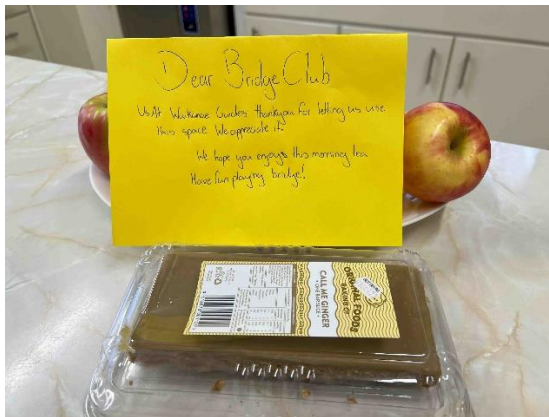 Dear Bridge Club
Us At Waikanae Guides thankyou for letting us use
this space We appreciate it.
We hope you enjoys this morning tea
Have fun playing bridge!
ORIGINAL FOODS
BAKING CO
CALL ME GINGER